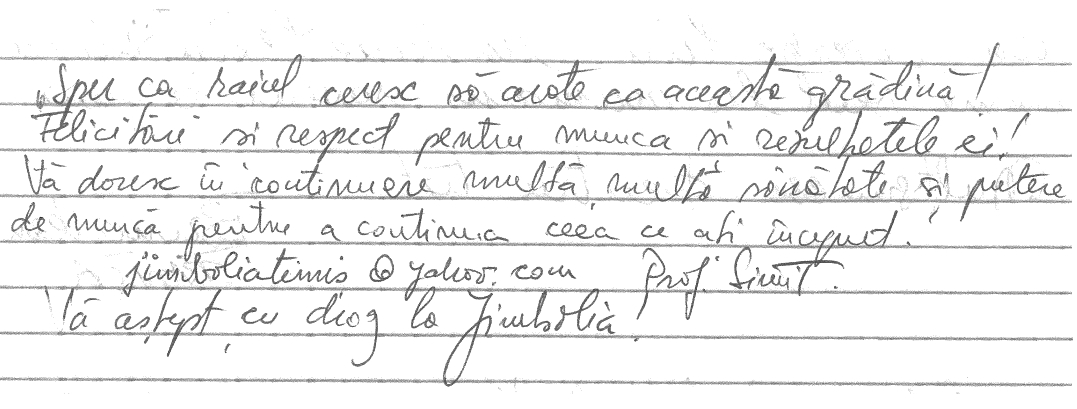 „Sper ca raiul ceresc să arate ca această grădină!
Felicitări si respect pentru munca si rezultatele ei!
Vă doresc în continuare multă multă sănătate și putere
de muncă pentru a continua ceea ce ati început.
jimboliatimis@yahoo.com Prof. SimiT.
Vă aștept cu drag la Jimbolia!